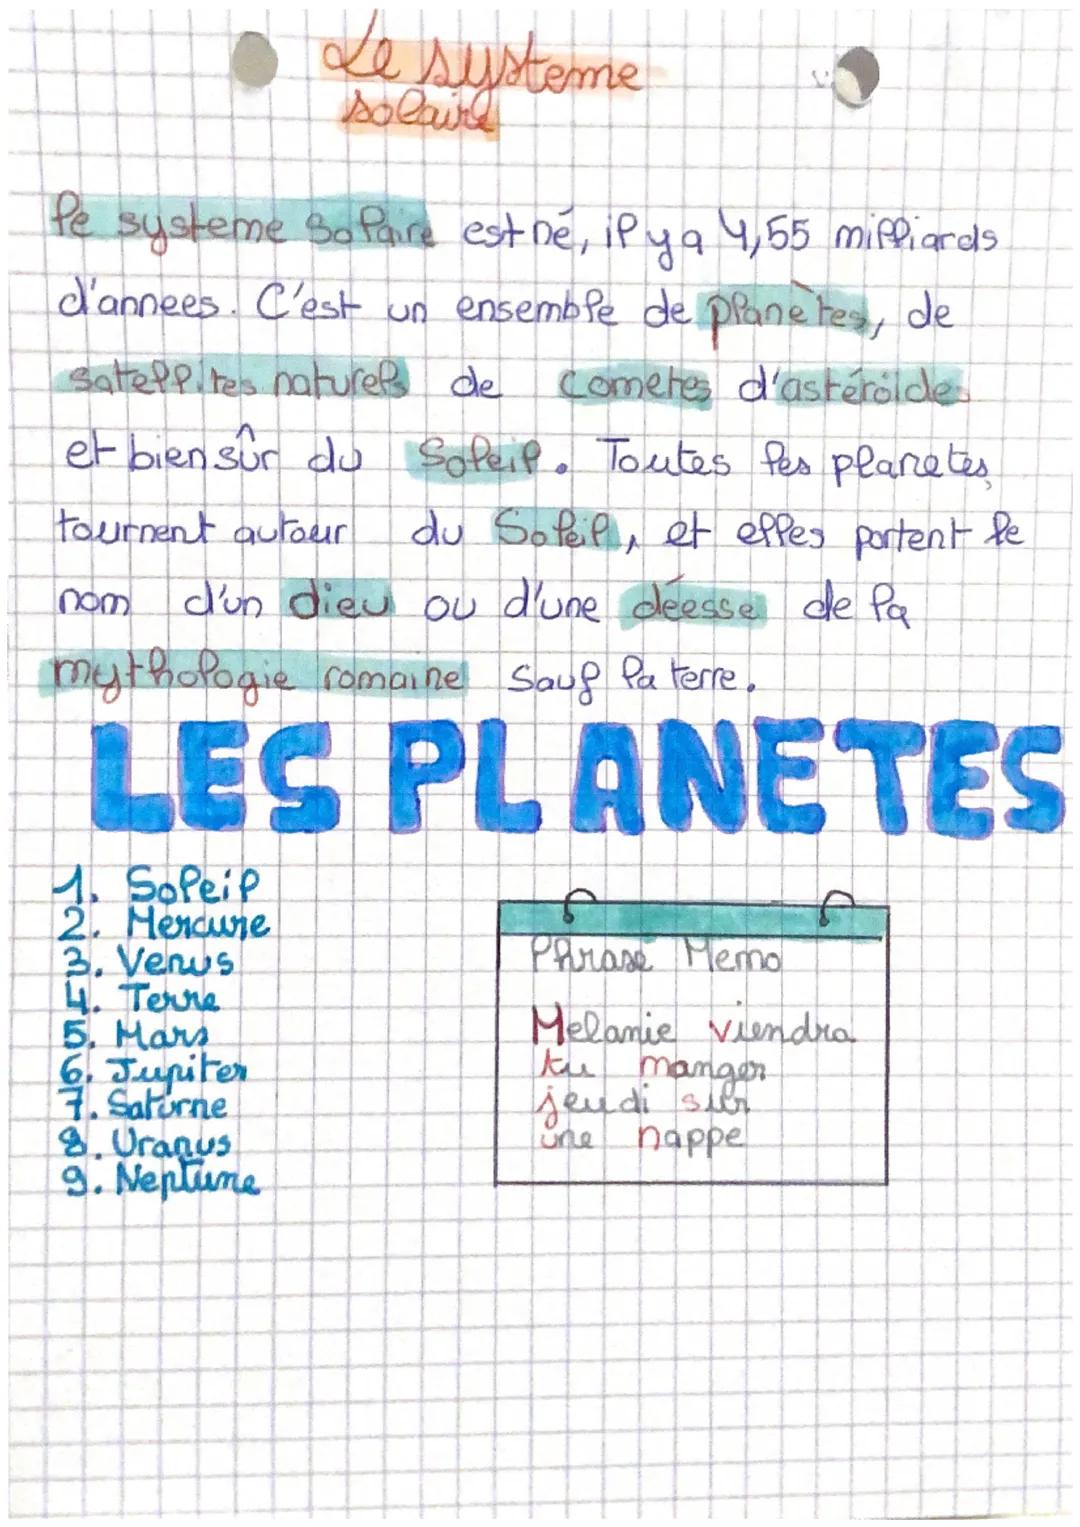 Le systeme
solaire
le systeme solaire est né, il y a 4,55 milliards
d'annees. C'est un ensemble de planètes, de
satellites naturels de cometes d'astéroides
et bien sûr du Soleil. Toutes les planetes
tournent autour du Soleil, et elles portent le
nom d'un dieu ou d'une déesse de la
mythologie romaine sauf la terre.
LES PLANETES
1. Soleil
2. Mercure
3. Venus
4. Terre
5. Mars
6. Jupiter
7. Saturne
8. Uranus
9. Neptune
Phrase Memo
Melanie viendra
tu manger
jeudi sur
une nappe